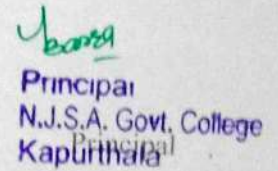 Principal
N.J.S.A. Govt. College
Kapurthala
Principal